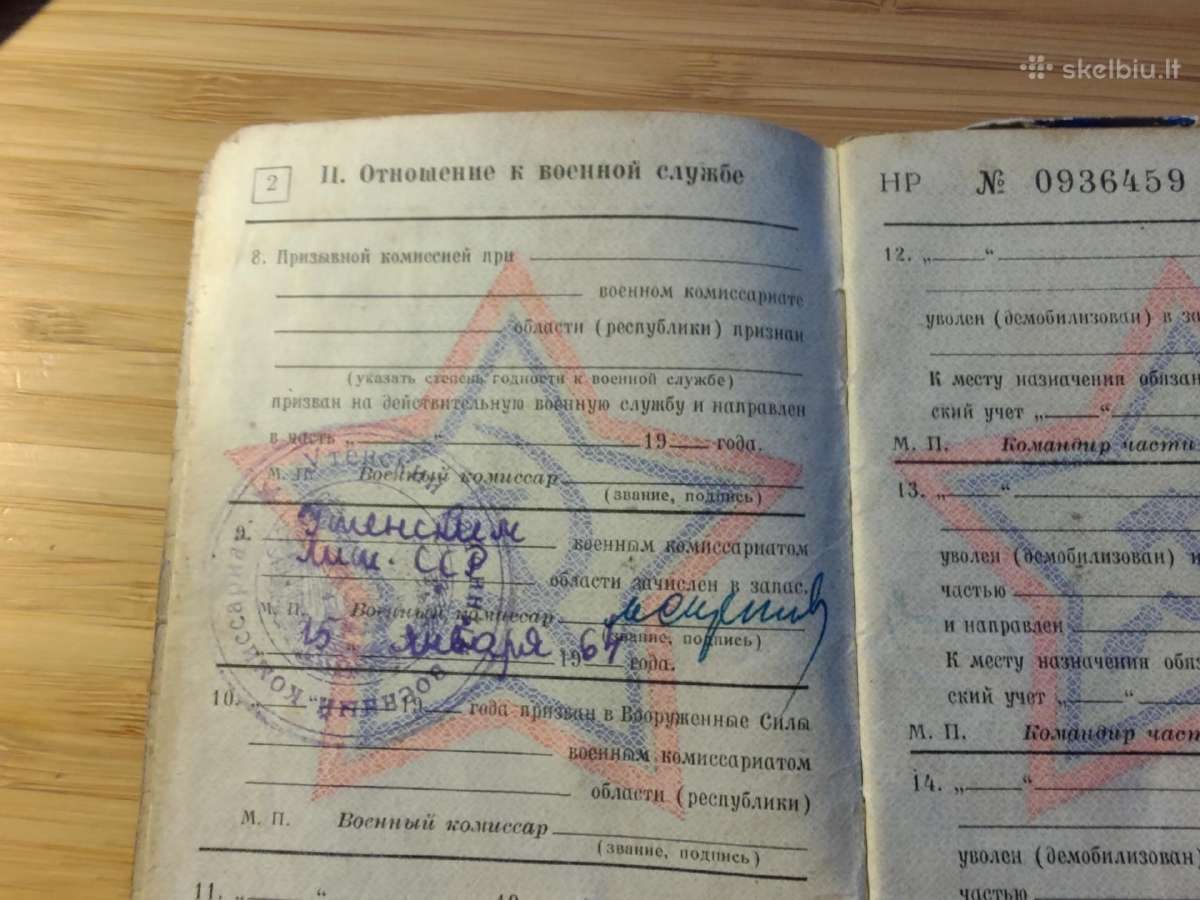 skelbiu.lt
2 II. Отношение к военной службе
8. Призывной комиссией при
военном комиссариате
области (республики) признан
(указать степень годности к военной службе)
призван на действительную военную службу и направлен
в часть „ “ 19 года.
М. П. Военный комиссар
(звание, подпись)
9. Утенским военным комиссариатом
Лит. ССР
области зачислен в запас.
М. П. Военный комиссар
(звание, подпись)
15 января 1964 года.
10. „ “ 19 года призван в Вооруженные Силы
военным комиссариатом
области (республики)
М. П. Военный комиссар
(звание, подпись)
11. „ “ 19
НР № 0936459
12. „ “
уволен (демобилизован) в за
К месту назначения обязан
ский учет „ “
М. П. Командир части
13. „ “
уволен (демобилизован) и
частью
и направлен
К месту назначения обяз
ский учет „ “
М. П. Командир част
14. „ “
уволен (демобилизован)
частью